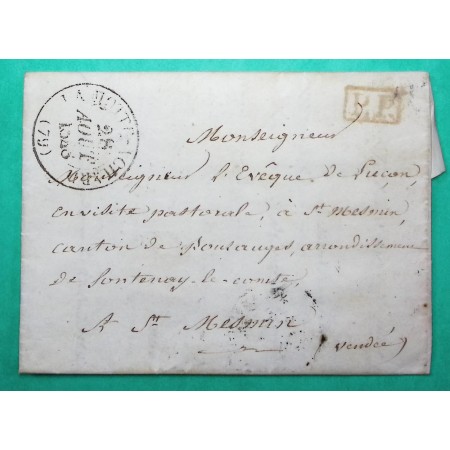 LA MOTHE-ACHARD (79)
28
AOUT
P.P.
Monseigneur
Monseigneur l'Evêque de Luçon,
en visite pastorale, à St Mesmin,
canton de Pouzauges, arrondissement
de fontenay-le-comte,
A St Mesmin
vendée